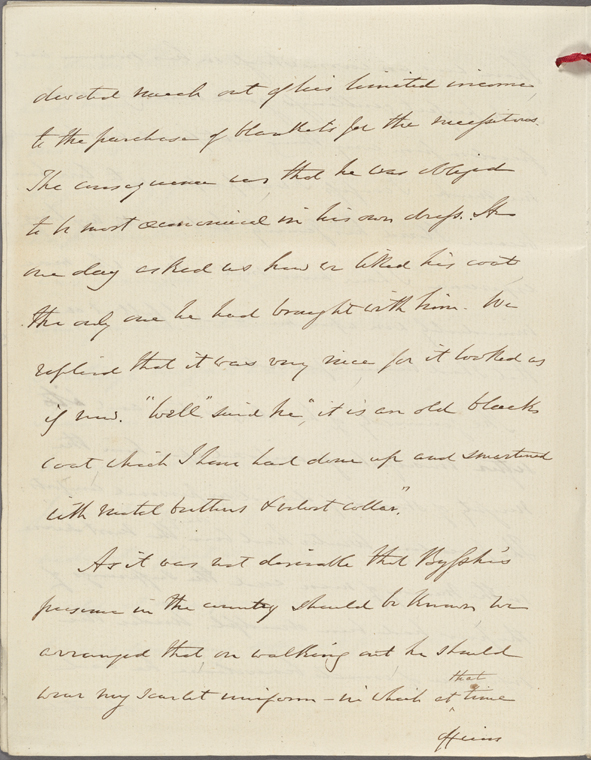 devoted much out of his limited income,
to the purchase of blankets for the necessitous.
The consequence was, that he was obliged
to be most economical in his own dress. He
one day asked us how we liked his coat,
the only one he had brought with him. We
replied that it was very nice, for it looked as
if new. "Well" said he, "it is an old black
coat which I have had done up and smartened
with metal buttons & velvet collar."
As it was not desirable that Bysshe's
presence in the country should be known, we
arranged that, on walking out, he should
wear my scarlet uniform – in which at that time
officers